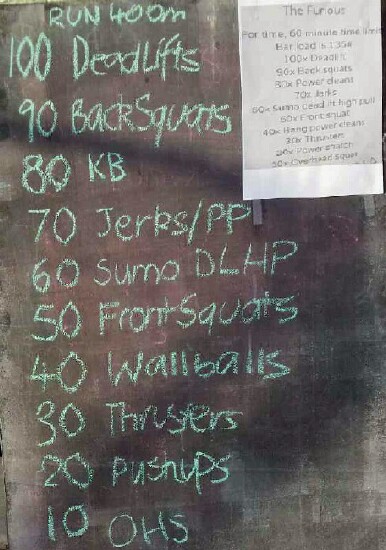 RUN 400m
100 DeadLifts
90 BackSquats
80 KB
70 Jerks/PP
60 Sumo DLHP
50 FrontSquats
40 Wallballs
30 Thrusters
20 pushups
10 OHS
The Furious
For time, 60 minute time limit
Bar load is 135#
100x Deadlift
90x Back squats
80x Power cleans
70x Jerks
60x Sumo dead lift high pull
50x Front squat
40x Hang power cleans
30x Thrusters
20x Power snatch
10x Overhead squat